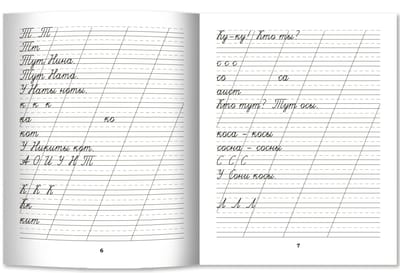 Т Т
Тт
Тут Нина.
Тут Ната.
У Наты ноты.
к к к
ка ко
кот
У Никиты кот.
А О И У Н Т
К К К
Кк
кит
6
Ку-ку! Кто ты?
с с с
со са
аист
Кто тут? Тут осы.
коса – косы
сосна – сосны
С С С
У Сони косы.
Л Л Л
7